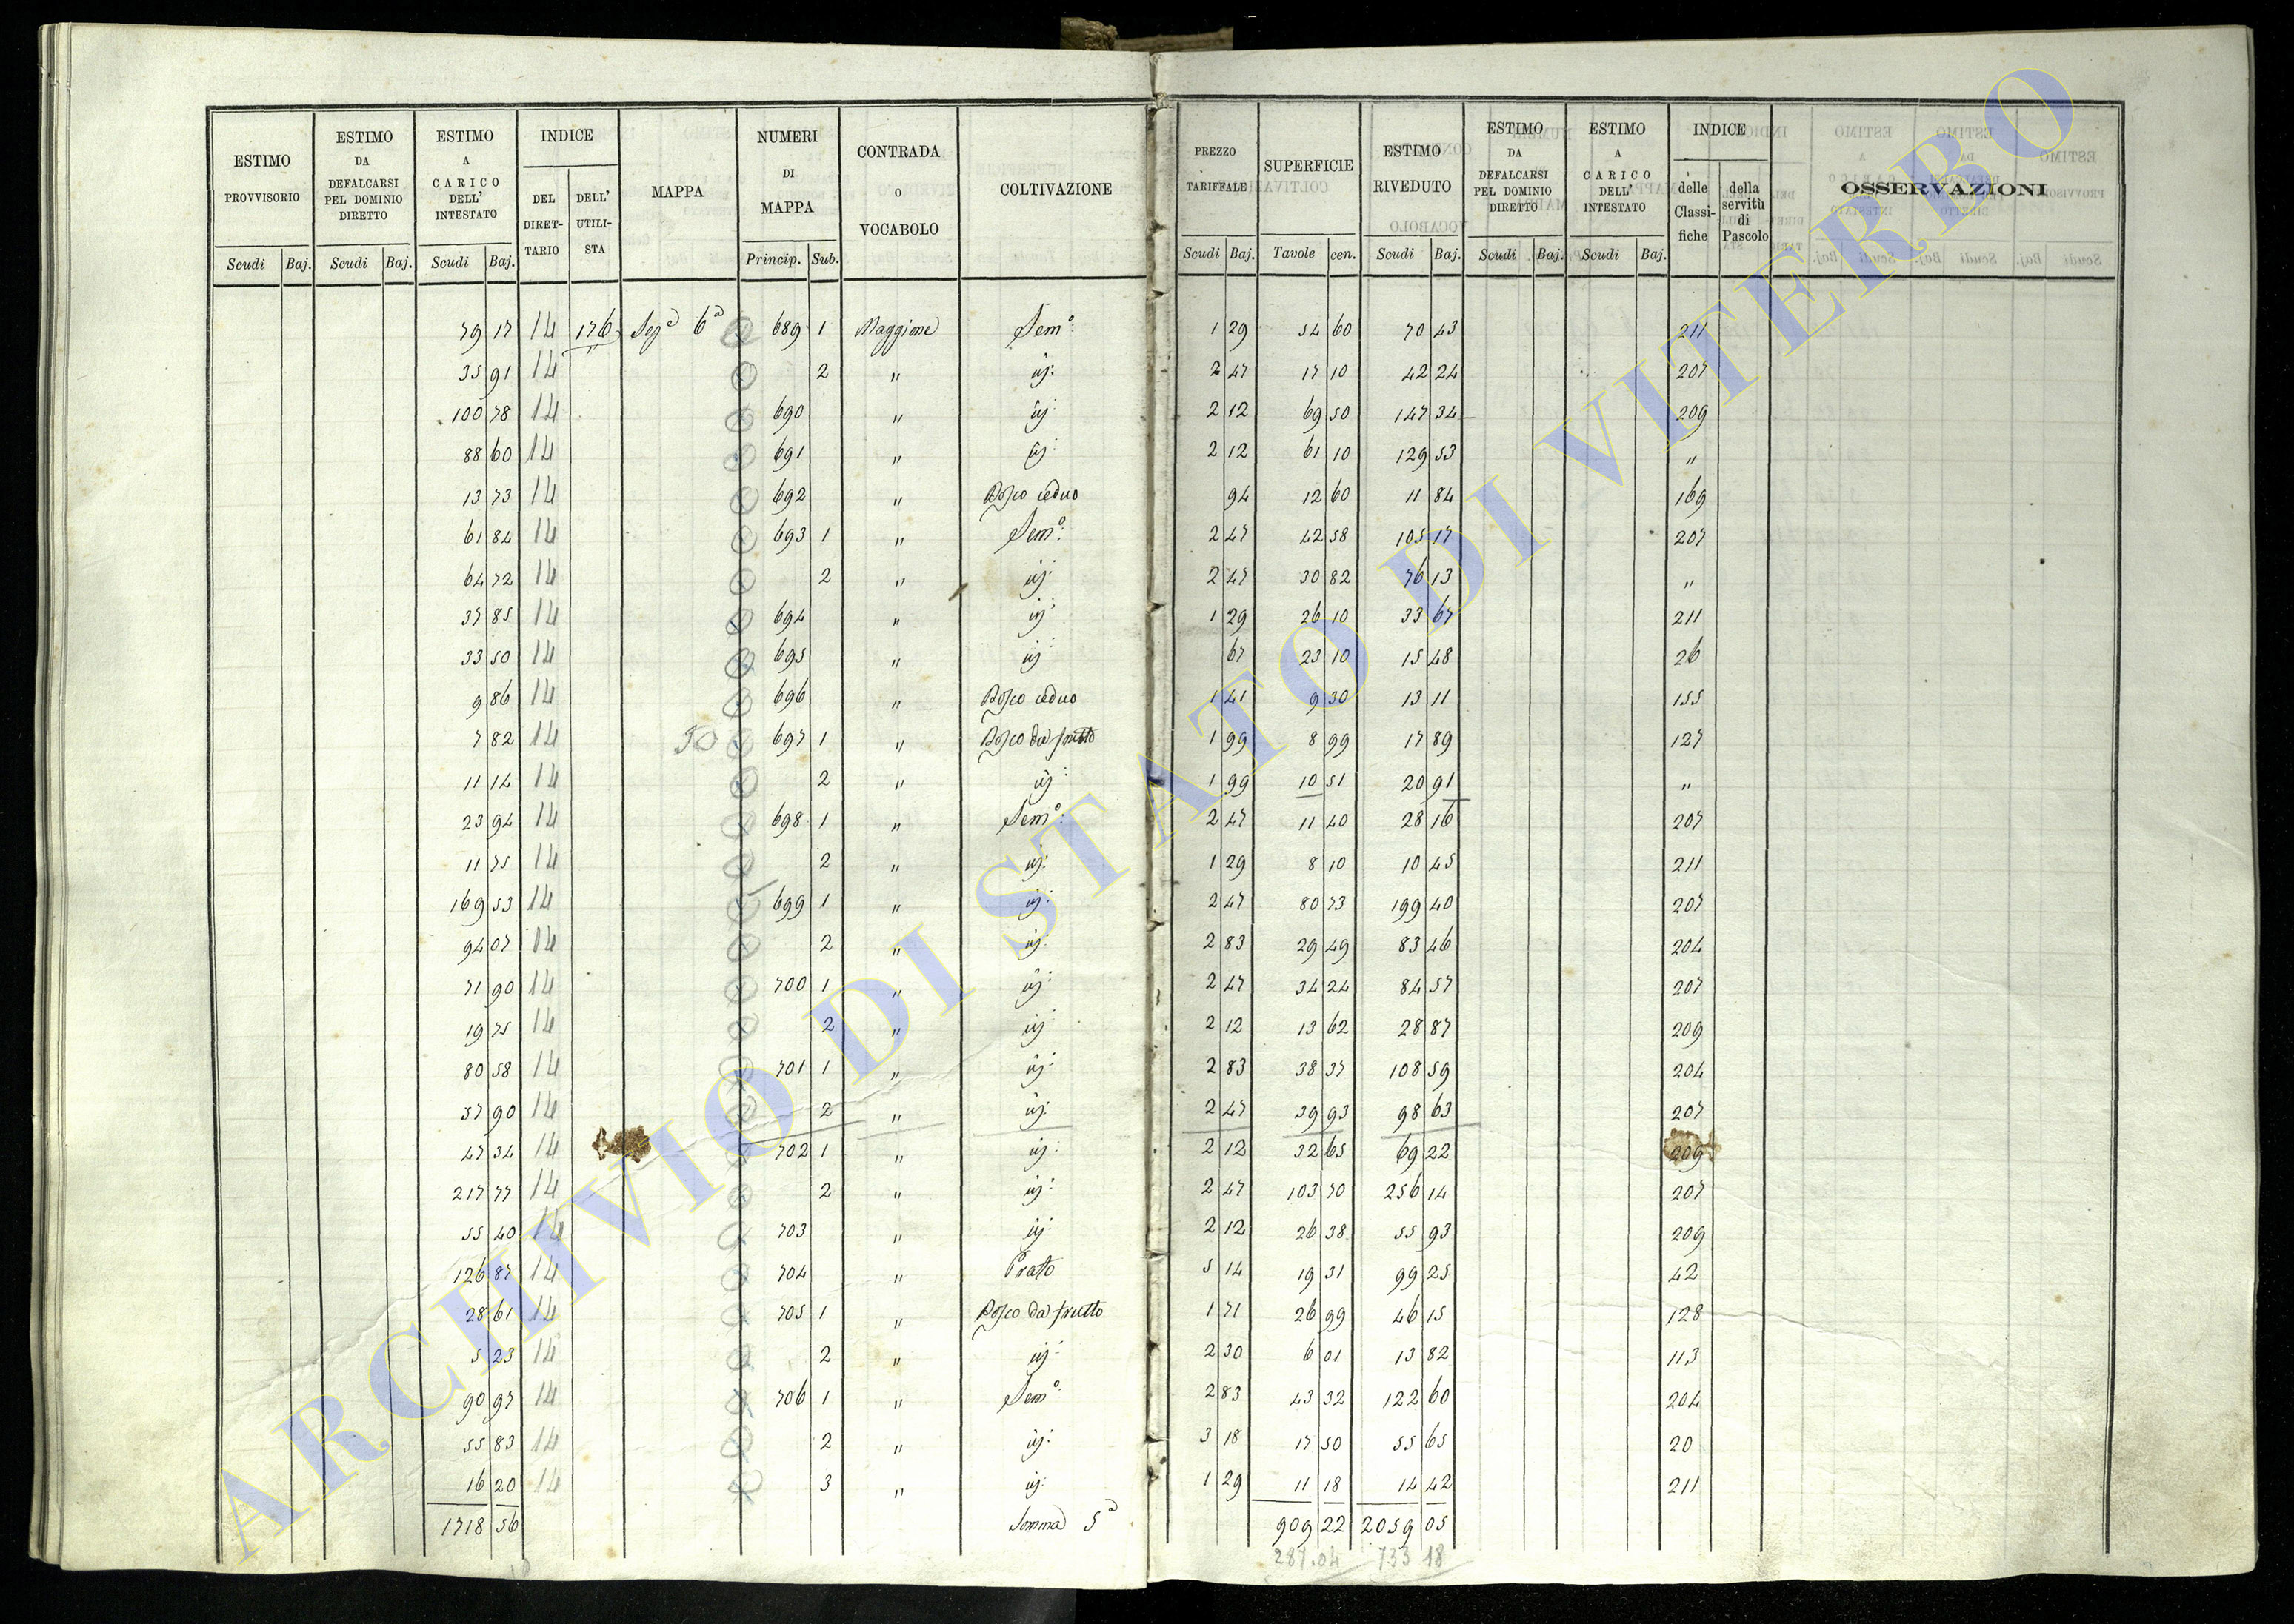 ESTIMO PROVVISORIO | ESTIMO DA DEFALCARSI PEL DOMINIO DIRETTO | ESTIMO A CARICO DELL' INTESTATO | INDICE DEL DIRETTARIO | DELL' UTILISTA | MAPPA | NUMERI DI MAPPA | CONTRADA O VOCABOLO | COLTIVAZIONE | PREZZO TARIFFALE | SUPERFICIE | ESTIMO RIVEDUTO | ESTIMO DA DEFALCARSI PEL DOMINIO DIRETTO | ESTIMO A CARICO DELL' INTESTATO | INDICE delle Classifiche | della servitù di Pascolo | OSSERVAZIONI
Scudi Baj. | Scudi Baj. | Scudi Baj. | Princip. Sub. | Scudi Baj. | Tavole cen. | Scudi Baj. | Scudi Baj. | Scudi Baj.
79 17 14 176 Segª 6ª 689 1 Maggione Semº: 1 29 54 60 70 43 211
35 91 14 2 " id: 2 47 17 10 42 24 207
100 78 14 690 " id: 2 12 69 50 147 34 209
88 60 14 691 " id: 2 12 61 10 129 53 "
13 73 14 692 " Bosco ceduo 94 12 60 11 84 169
61 84 14 693 1 " Semº: 2 47 42 58 105 17 207
64 72 14 2 " id: 2 47 30 82 76 13 "
37 85 14 694 " id: 1 29 26 10 33 67 211
33 50 14 695 " id: 67 23 10 15 48 26
9 86 14 696 " Bosco ceduo 1 41 9 30 13 11 155
7 82 14 50 697 1 " Bosco da frutto 1 99 8 99 17 89 127
11 14 14 2 " id: 1 99 10 51 20 91 "
23 94 14 698 1 " Semº: 2 47 11 40 28 16 207
11 75 14 2 " id: 1 29 8 10 10 45 211
169 53 14 699 1 " id: 2 47 80 73 199 40 207
94 07 14 2 " id: 2 83 29 49 83 46 204
71 90 14 700 1 " id: 2 47 34 24 84 57 207
19 75 14 2 " id: 2 12 13 62 28 87 209
80 58 14 701 1 " id: 2 83 38 37 108 59 204
37 90 14 2 " id: 2 47 39 93 98 63 207
47 34 14 702 1 " id: 2 12 32 65 69 22 209
217 77 14 2 " id: 2 47 103 70 256 14 207
55 40 14 703 " id: 2 12 26 38 55 93 209
126 87 14 704 " Prato 5 14 19 31 99 25 42
28 61 14 705 1 " Bosco da frutto 1 71 26 99 46 15 128
5 23 14 2 " id: 2 30 6 01 13 82 113
90 97 14 706 1 " Semº: 2 83 43 32 122 60 204
55 83 14 2 " id: 3 18 17 50 55 65 20
16 20 14 3 " id: 1 29 11 18 14 42 211
1718 56 Somma 5ª 909 22 2059 05
287.04 733 18
ARCHIVIO DI STATO DI VITERBO